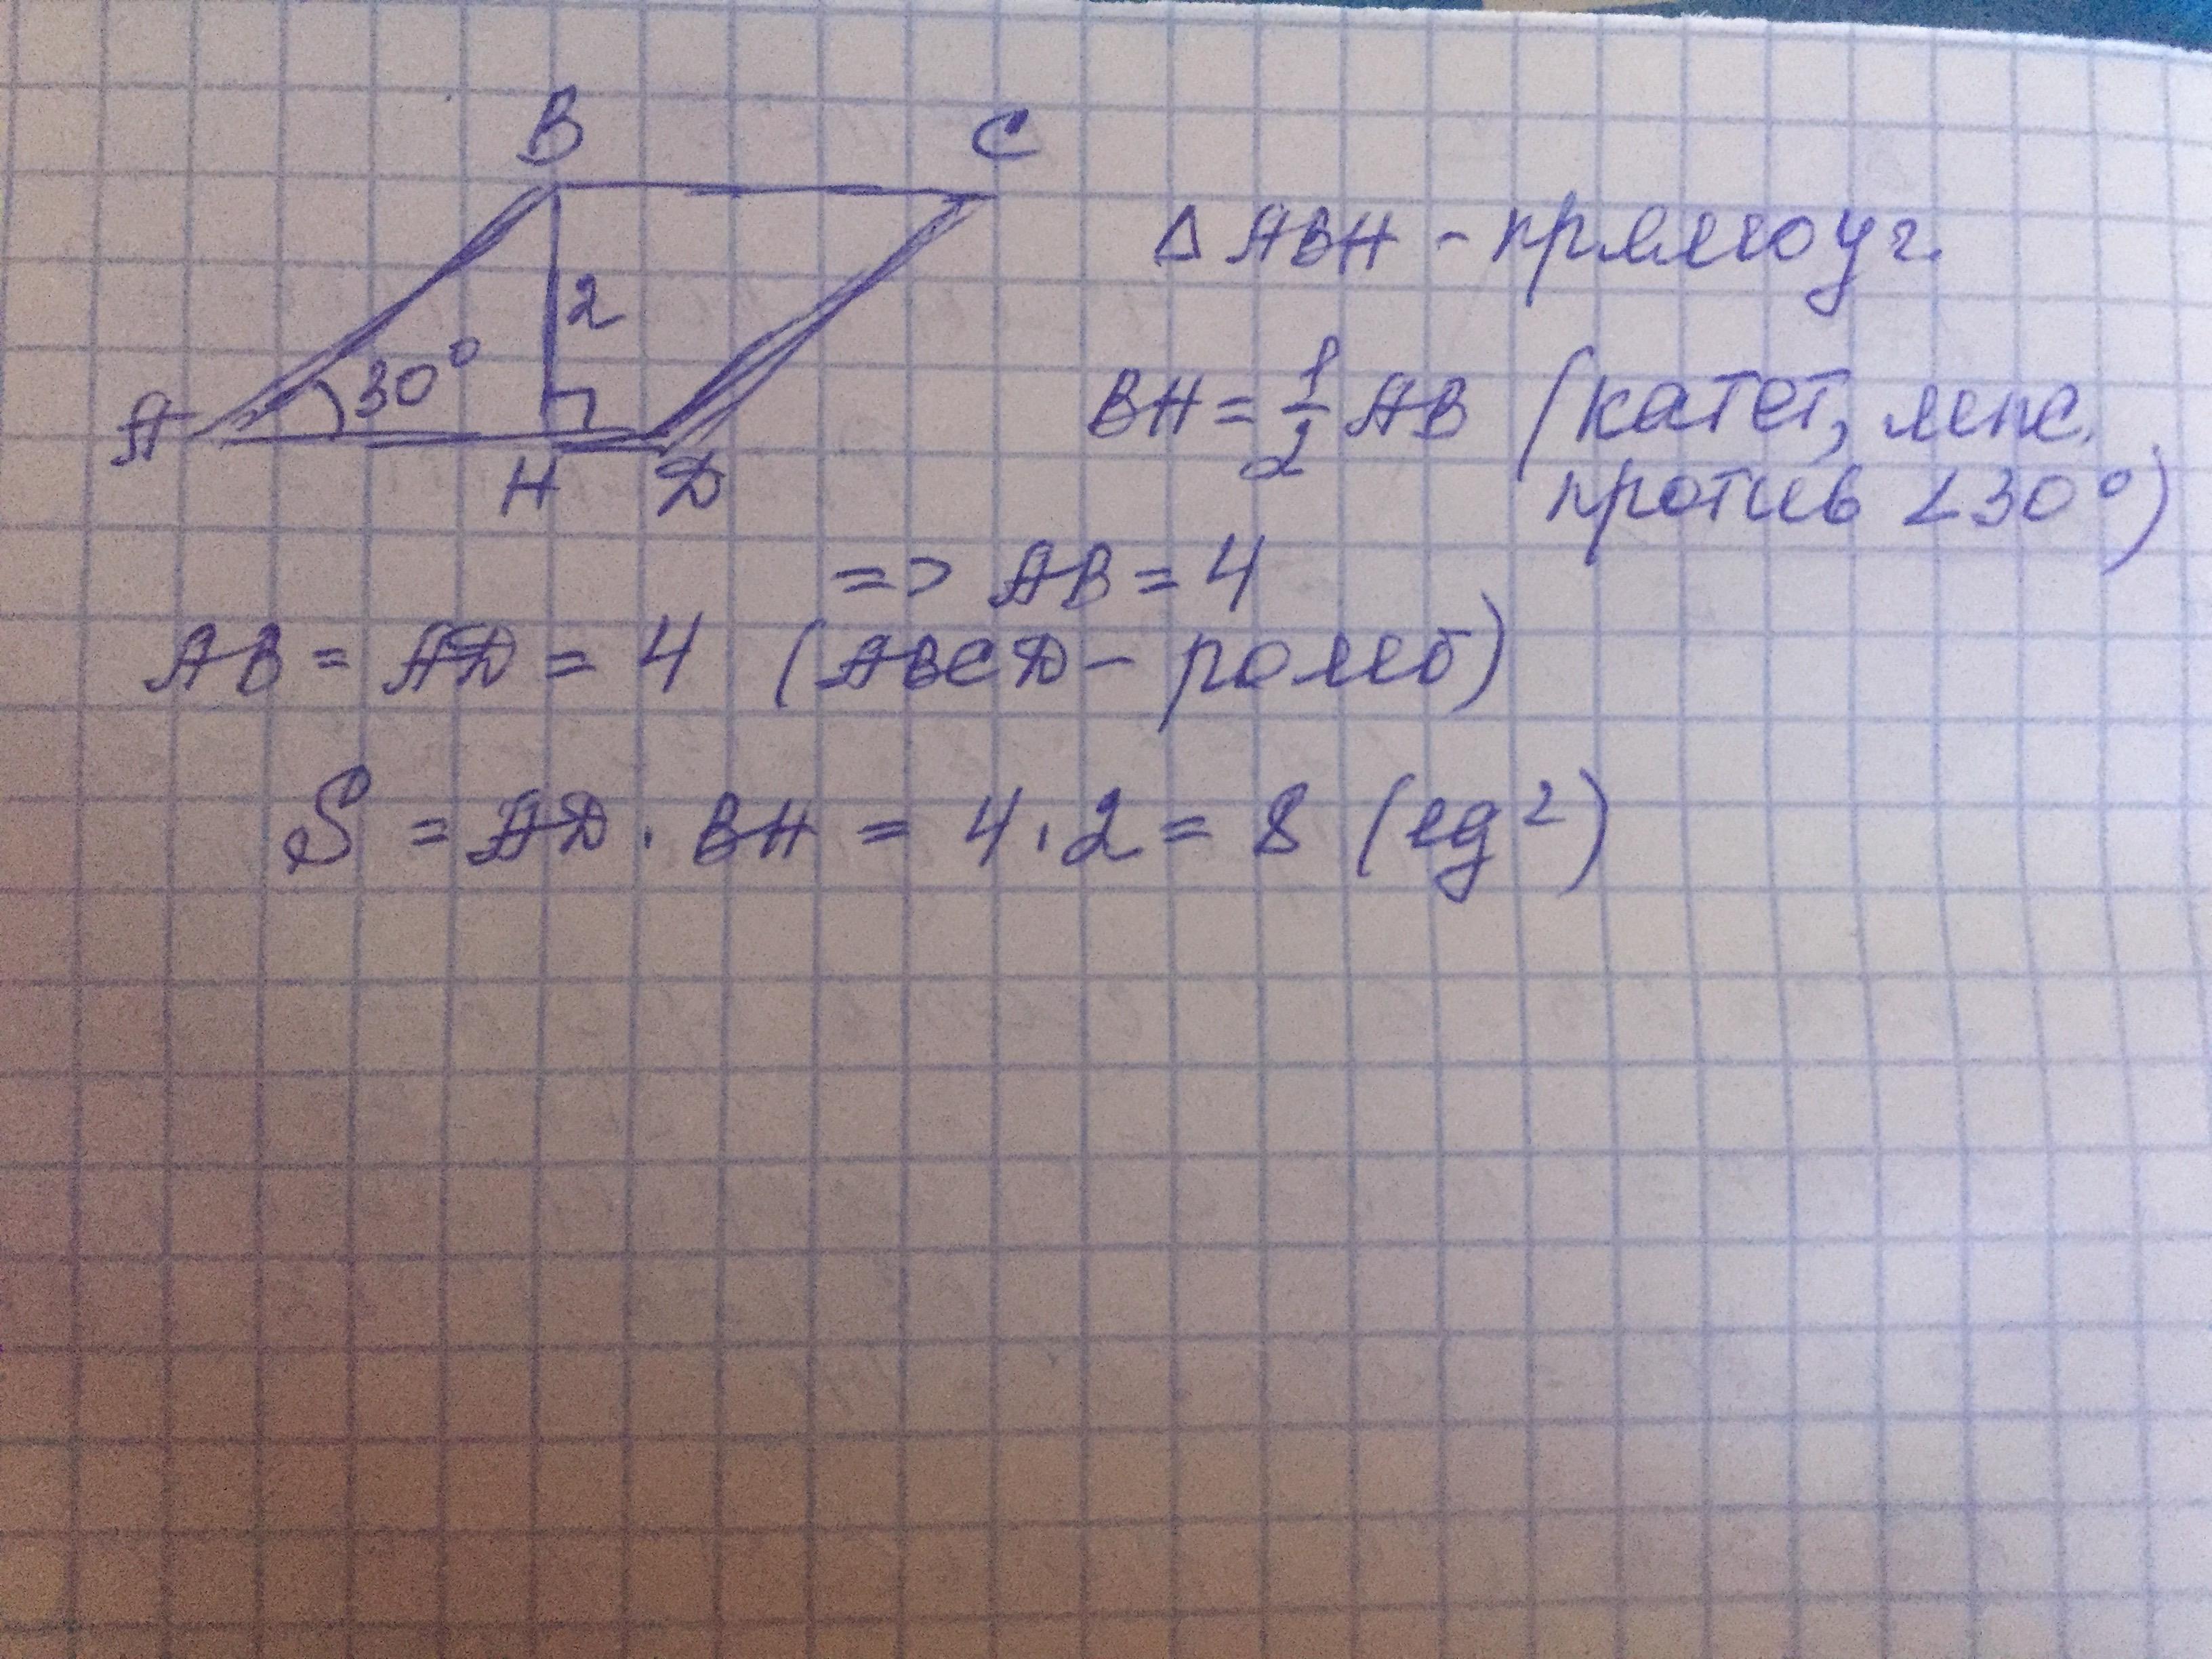 B C
2
30°
A
H D
Δ ABH - прямоуг.
BH = 1/2 AB (катет, леж.
против <30°)
=> AB = 4
AB = AD = 4 (ABCD - ромб)
S = AD · BH = 4 · 2 = 8 (ед²)